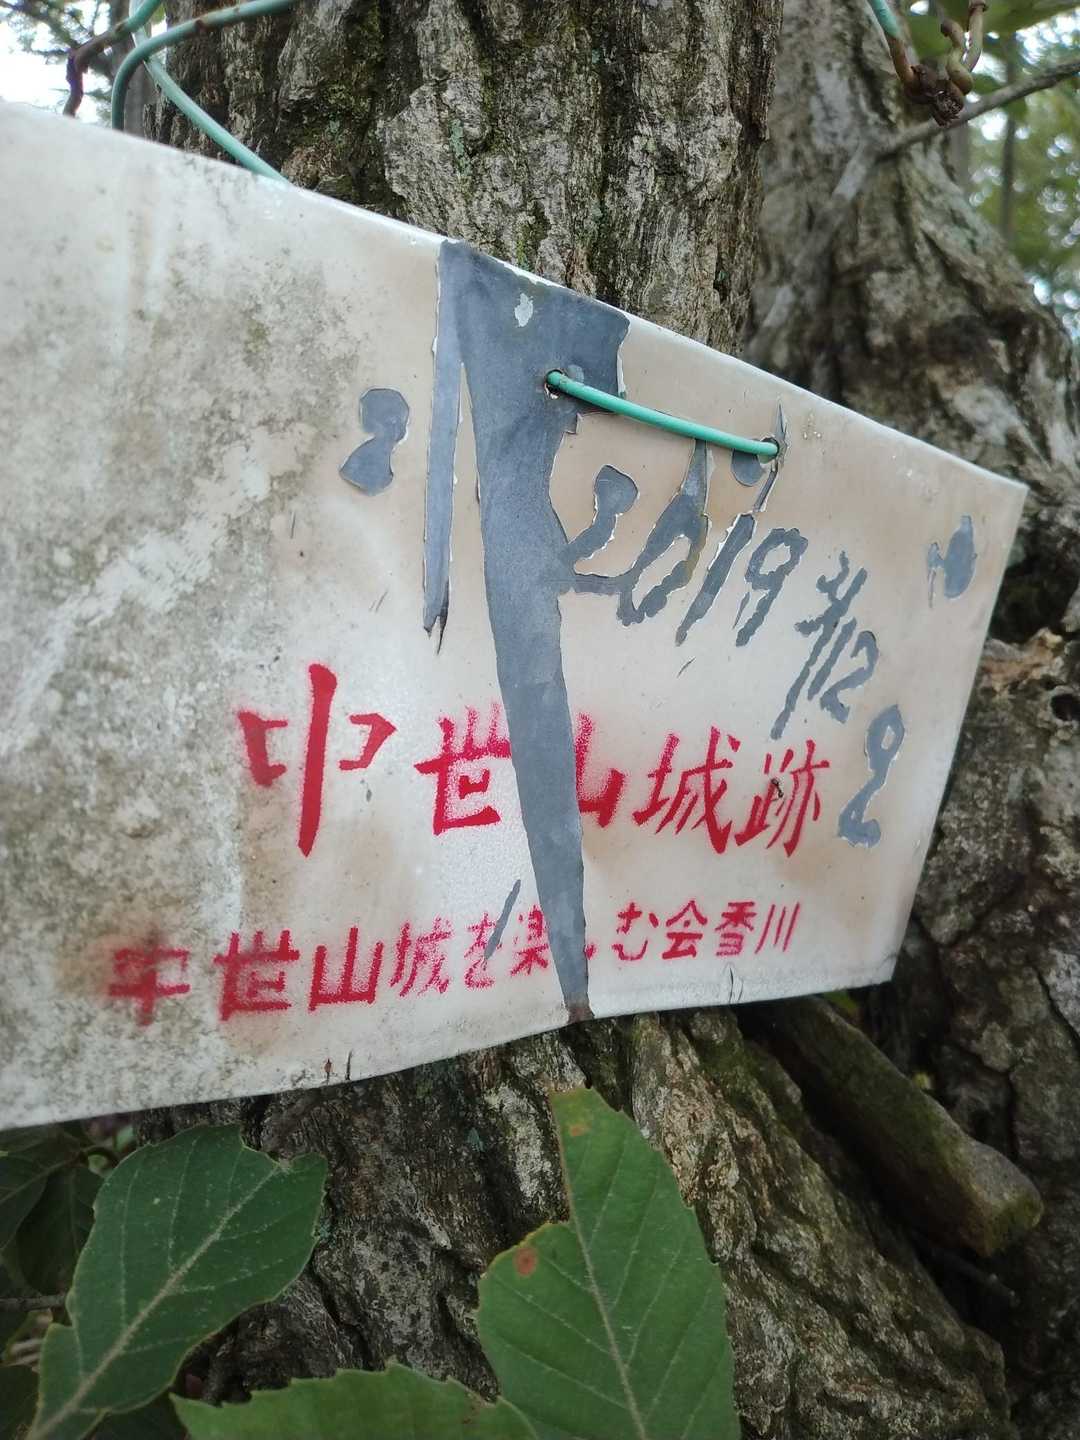 2019 4/12
中世山城跡
中世山城を楽しむ会香川